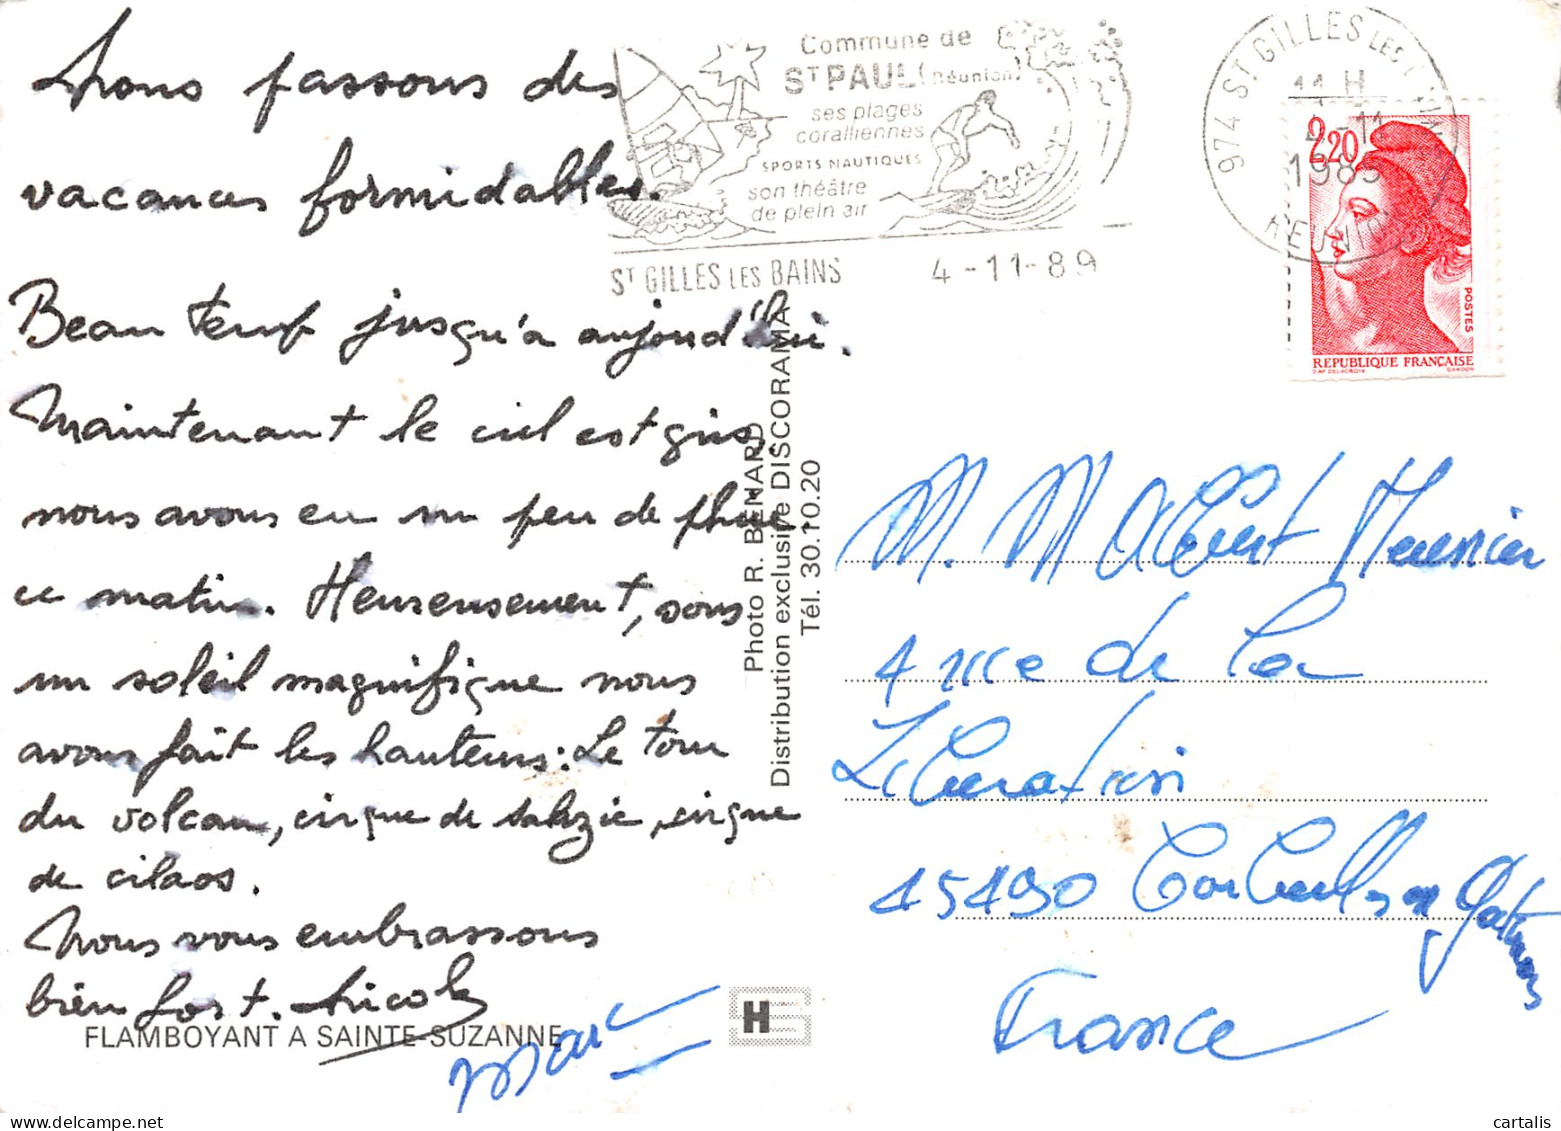 Nous passons des
vacances formidables.
Beau temps jusqu'à aujourd'hui.
Maintenant le ciel est gris,
nous avons eu un peu de pluie
ce matin. Heureusement, sous
un soleil magnifique nous
avons fait les hauteurs : Le tour
du volcan, cirque de salazie, cirque
de cilaos.
Nous vous embrassons
bien fort. Nicole
Marc
FLAMBOYANT A SAINTE-SUZANNE
Photo R. BENARD
Distribution exclusive DISCORAMA
Tél. 30.10.20
Commune de
ST PAUL (Réunion)
ses plages
coralliennes
SPORTS NAUTIQUES
son théâtre
de plein air
ST GILLES LES BAINS 4-11-89
974 ST GILLES LES
11 H
4-11
1989
REUNION
2,20
POSTES
REPUBLIQUE FRANÇAISE
D'AP. DELACROIX GANDON
M. M Albert Meunier
4 rue de la
Libération
45490 Corbeilles en Gatinais
France
cartalis